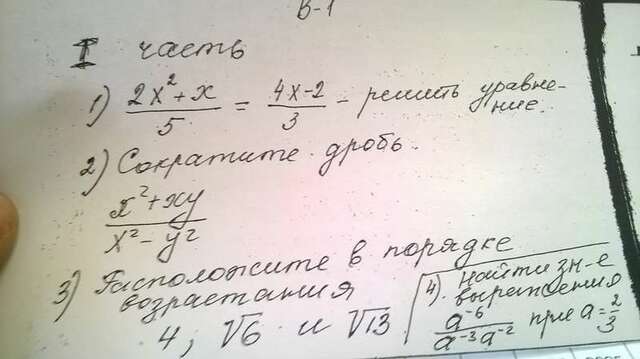 В-1
I часть
1) (2x² + x)/5 = (4x-2)/3 - решить уравне-
ние.
2) Сократите дробь.
(x² + xy)/(x² - y²)
3) Расположите в порядке
возрастания
4; √6 и √13.
4). Найти зн-е
выражения
a⁻⁶/(a⁻³a⁻²) при a = 2/3